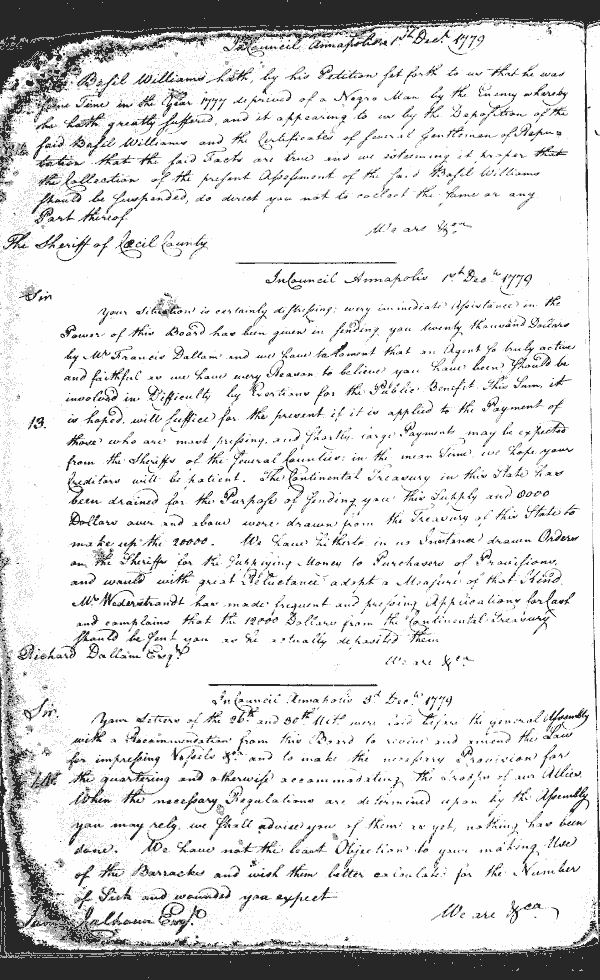 In Council Annapolis 1st Decr. 1779
Basil Williams hath by his Petition set forth to us that he was
some Time in the Year 1777 deprived of a Negro Man by the Enemy whereby
he hath greatly suffered, and it appearing to us by the Deposition of the
said Basil Williams and the Certificates of several Gentlemen of Repu-
tation that the said Facts are true and we esteeming it proper that
the Collection of the present Assessment of the said Basil Williams
should be suspended, do direct you not to collect the same or any
Part thereof.
We are &ca
The Sheriff of Cecil County
In Council Annapolis 1st Decr. 1779
Sir
Your Situation is certainly distressing; every immediate Assistance in the
Power of this Board has been given in sending you twenty thousand Dollars
by Mr Francis Dallam and we have to lament that an Agent so truly active
and faithful as we have every Reason to believe you have been should be
involved in Difficulty by Exertions for the Public Benefit This Sum, it
13.
is hoped, will suffice for the present if it is applied to the Payment of
those who are most pressing, and shortly, large Payments may be expected
from the Sheriffs of the several Counties; in the mean Time, we hope your
Creditors will be patient. The Continental Treasury in this State has
been drained for the Purpose of sending you this Supply and 8000
Dollars over and above were drawn from the Treasury of this State to
make up the 20000. We have hitherto in no Instance drawn Orders
on the Sheriffs for the supplying Money to Purchasers of Provisions,
and would with great Reluctance adopt a Measure of that Kind.
Mr Wederstrandt has made frequent and pressing Applications for Cash
and complains that the 12000 Dollars from the Continental Treasury
should be sent you as he actually deposited them
We are &ca
Richard Dallam Esqr.
In Council Annapolis 3d Decr. 1779
Sir.
Your Letters of the 26th and 30th Ulto. were laid before the general Assembly
with a Recommendation from this Board to revise and amend the Law
for impressing Vessels &ca and to make the necessary Provision for
14.
the quartering and otherwise accommodating the Troops of our Allies.
When the necessary Regulations are determined upon by the Assembly
you may rely, we shall advise you of them as yet, nothing has been
done. We have not the least Objection to your making Use
of the Barracks and wish them better calculated for the Number
of Sick and wounded you expect
We are &ca
Calhoun Esqr.